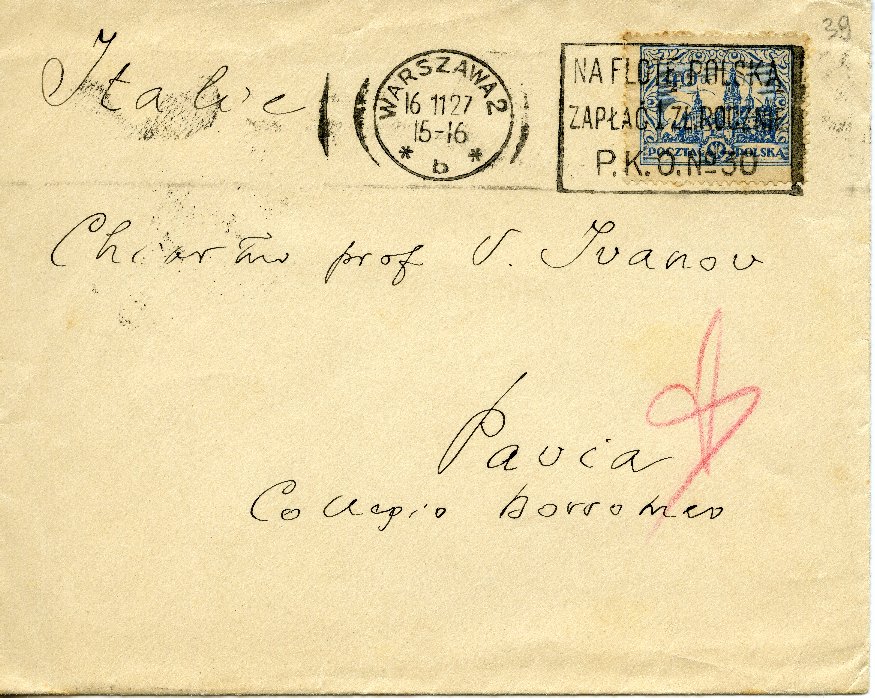 39
Italie
WARSZAWA 2
16 11 27
15-16
* b *
NA FLOTĘ POLSKĄ
ZAPŁAĆ 1 ZŁ ROCZNIE
P.K.O. № 30
POCZTA POLSKA
prof V. Ivanov
Pavia
Collegio Borromeo